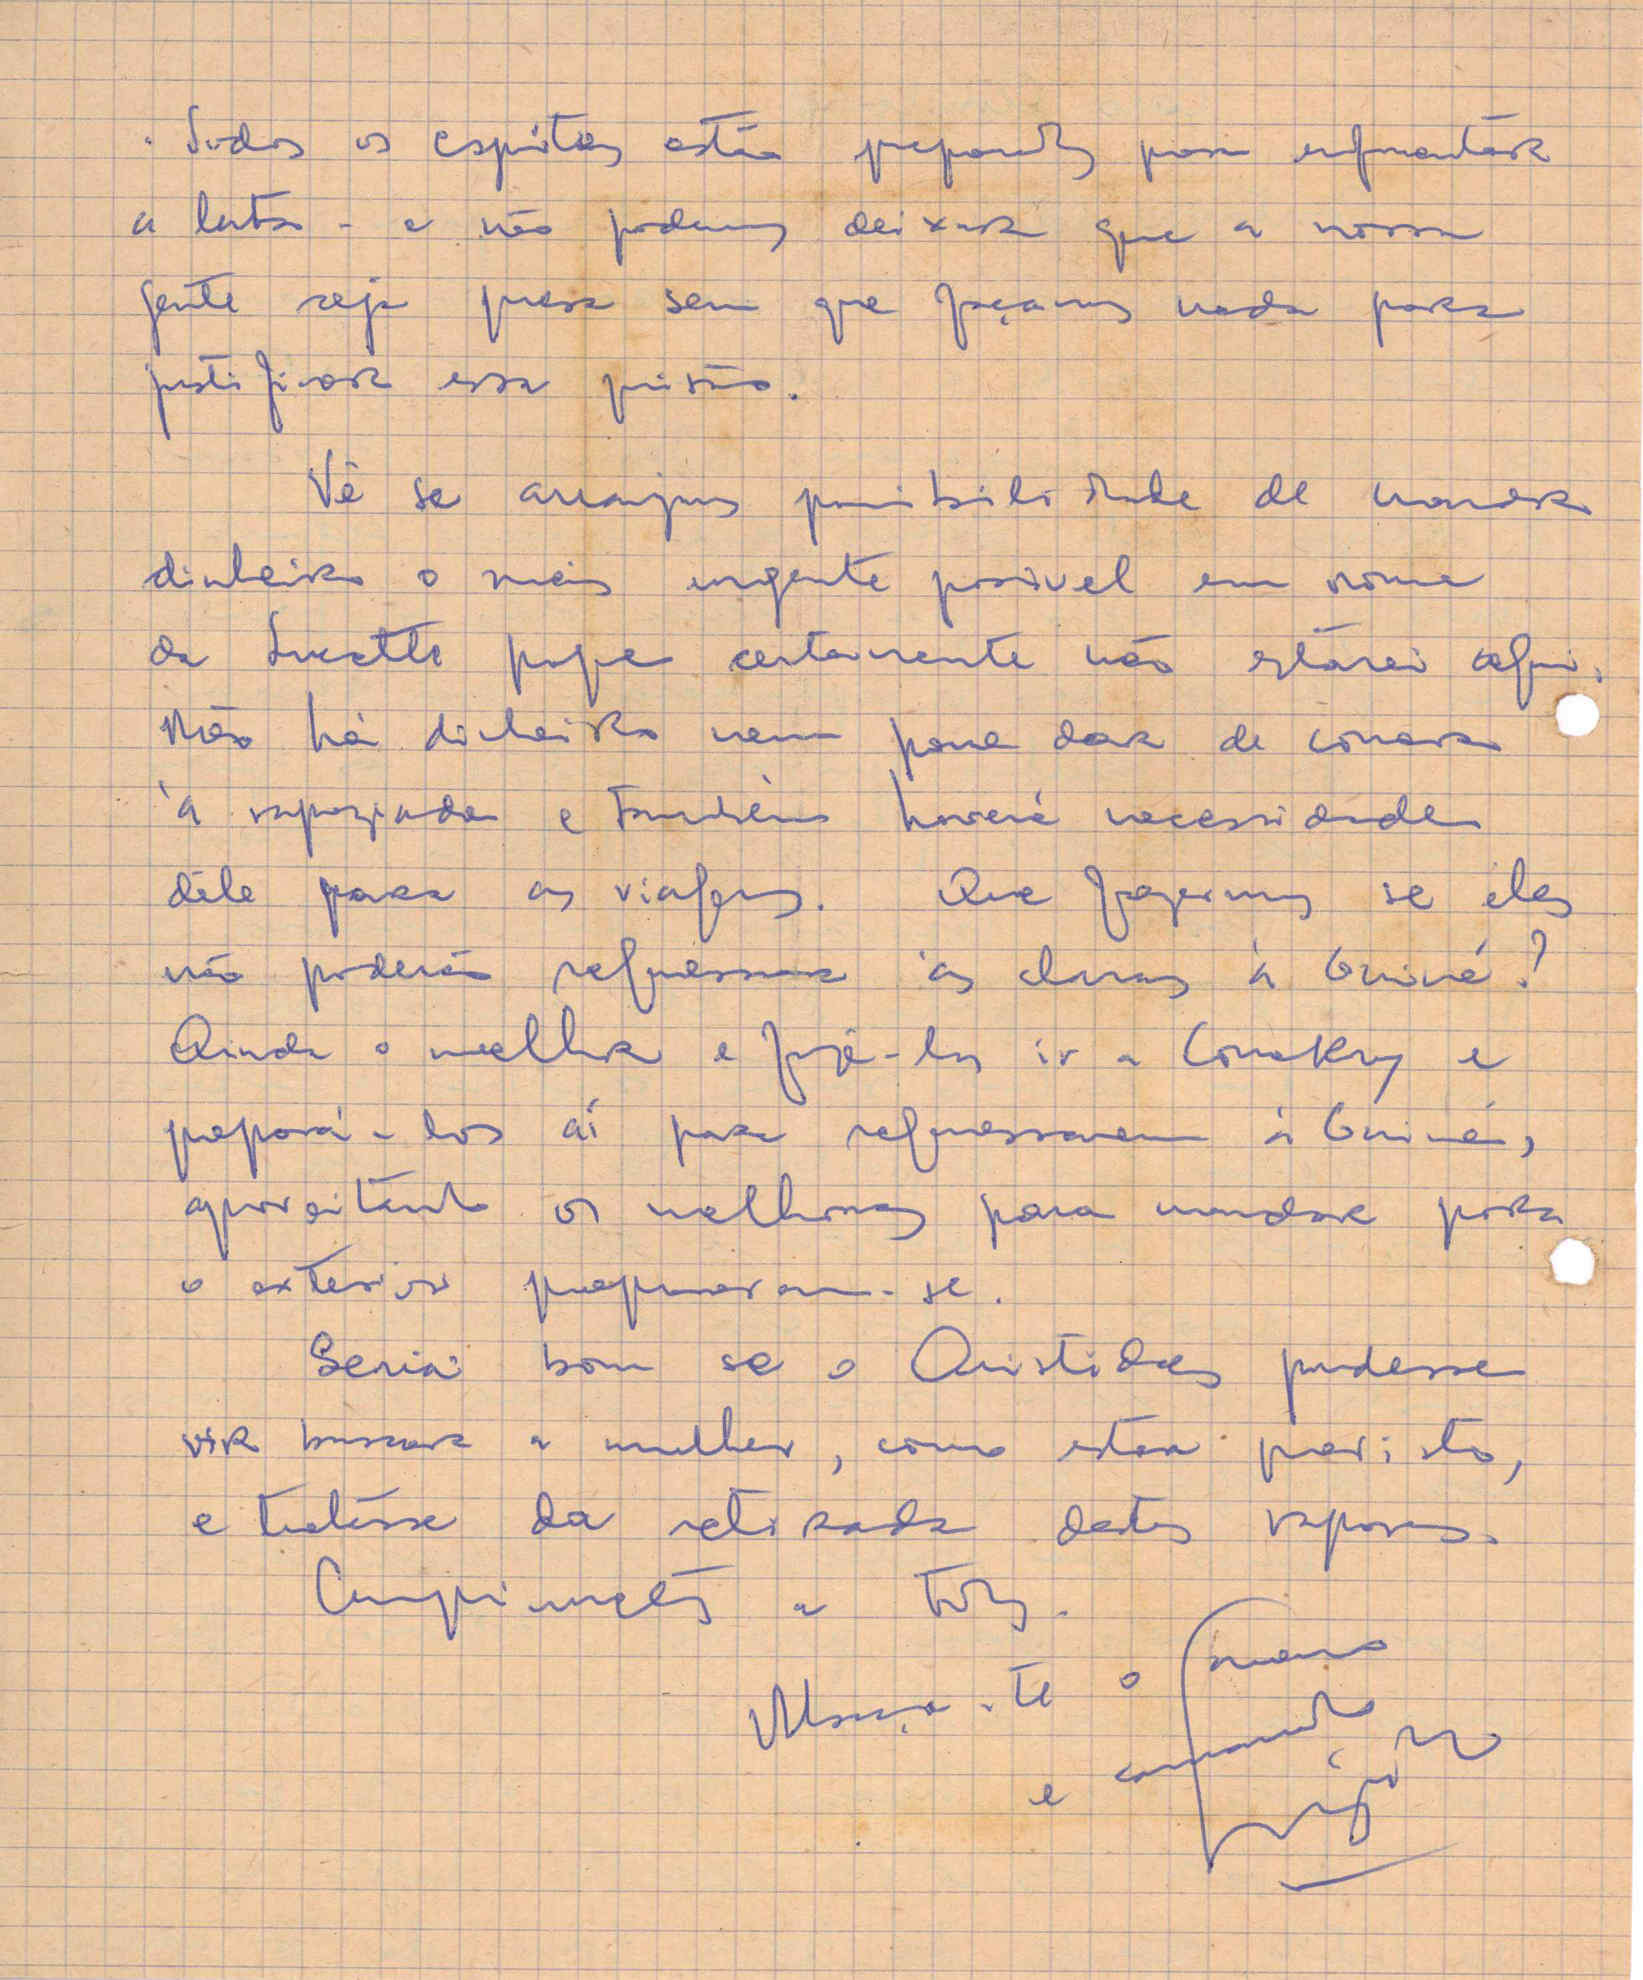 . Todos os espíritos estão preparados para enfrentar
a luta - e não podemos deixar que a nossa
gente seja presa sem que façamos nada para
justificar essa prisão.
Vê se arranjas possibilidade de mandar
dinheiro o mais urgente possível em nome
da Lucette porque certamente não estarei aqui.
Não há dinheiro nem para dar de comer
à rapaziada e também haverá necessidade
dêle para as viagens. Que fazermos se eles
não poderão regressar às claras à Guiné?
Ainda o melhor e fazê-los ir a Conakry e
prepará-los aí para regressarem à Guiné,
aproveitando os melhores para mandar para
o exterior prepararem-se.
Seria bom se o Aristides pudesse
vir buscar a mulher, como estava previsto,
e tratasse da retirada destes rapazes.
Cumprimentos a todos.
Abraça-te o mano
e camarada